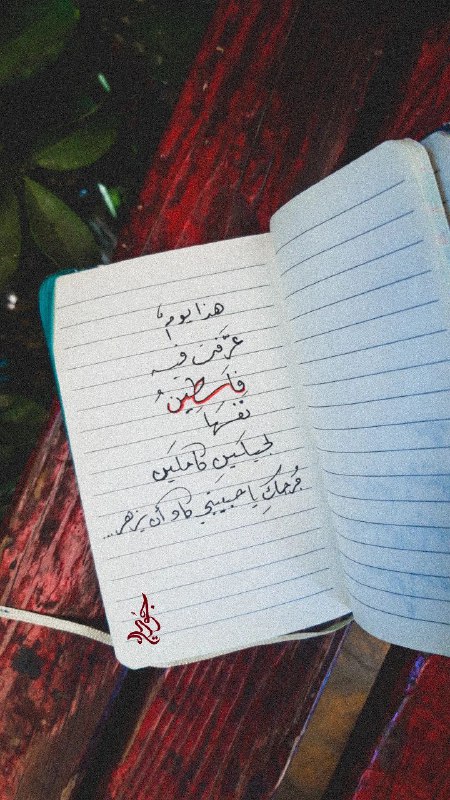 هذا يومٌ
عرّفَت فيه
فلسطينُ
نفسَهَا
لجيلَينِ كاملَين
جُرحكِ يا حبيبتي كاد أن يزهر...